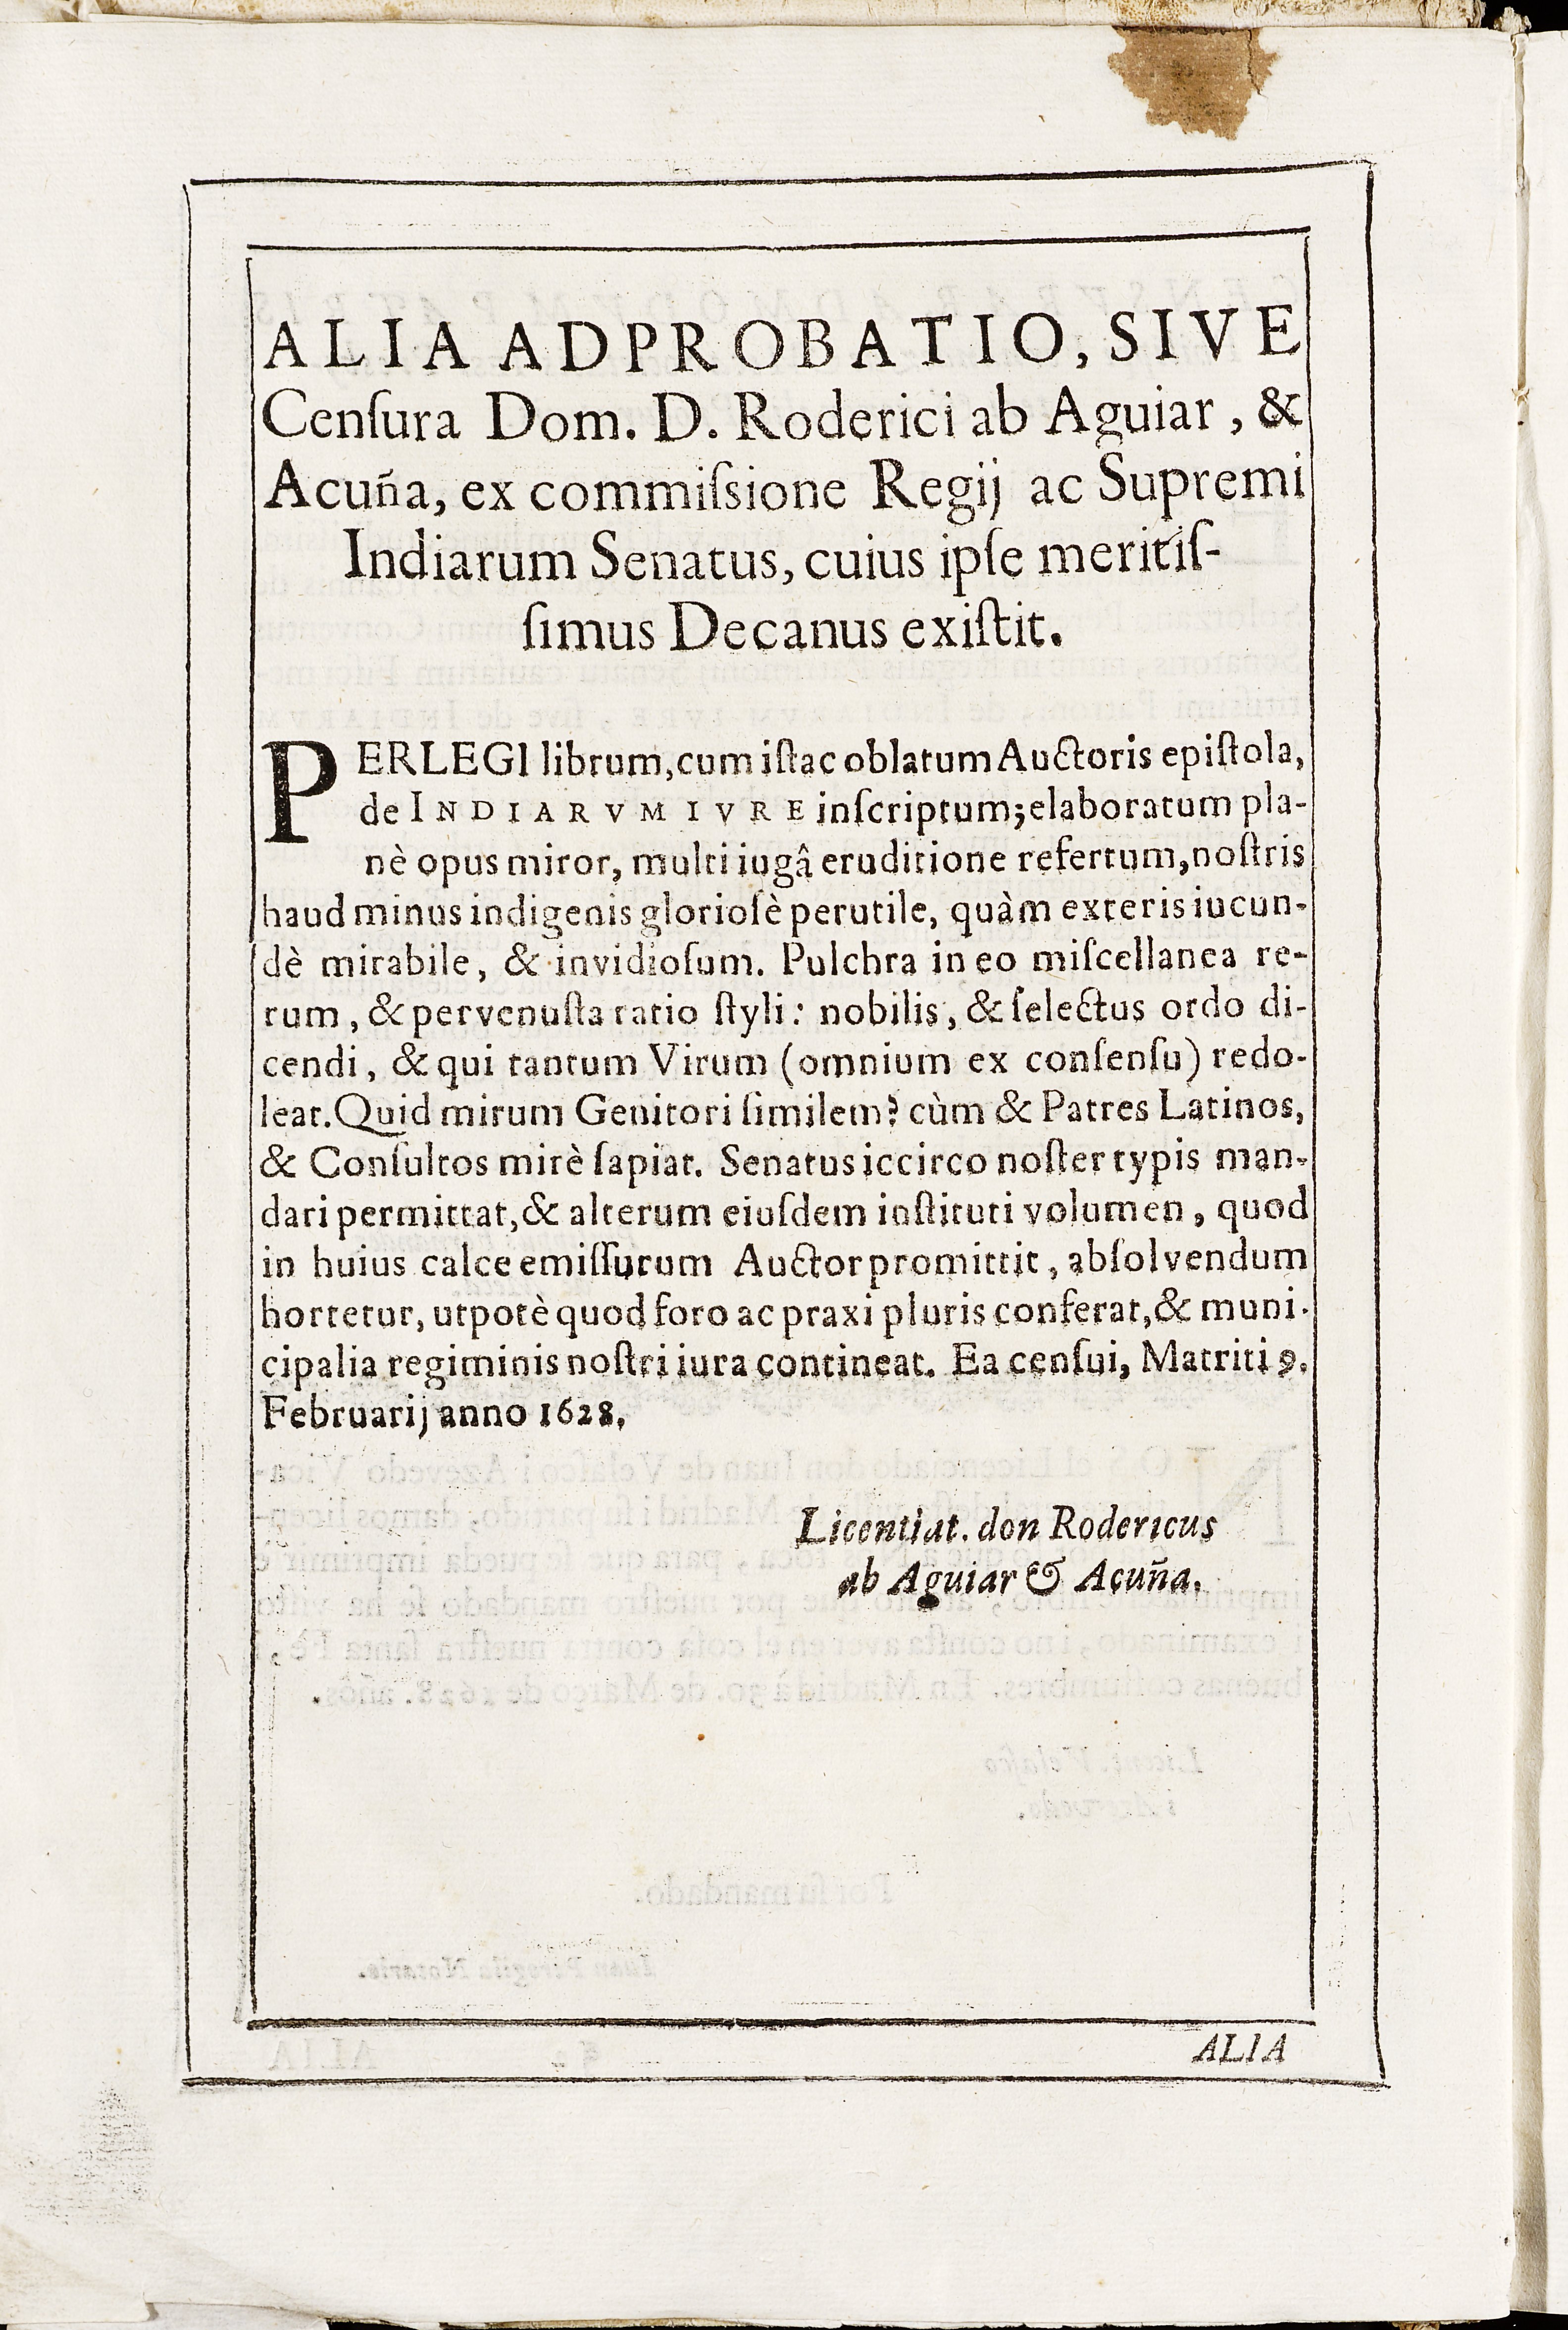 ALIA ADPROBATIO, SIVE
Cenſura Dom. D. Roderici ab Aguiar, &
Acuña, ex commiſsione Regij ac Supremi
Indiarum Senatus, cuius ipſe meritiſ-
ſimus Decanus exiſtit.
PERLEGI librum, cum iſtac oblatum Auctoris epiſtola,
de INDIARVM IVRE inſcriptum; elaboratum pla-
nè opus miror, multi iugâ eruditione refertum, noſtris
haud minus indigenis glorioſè perutile, quàm exteris iucun-
dè mirabile, & invidioſum. Pulchra in eo miſcellanea re-
rum, & pervenuſta ratio ſtyli: nobilis, & ſelectus ordo di-
cendi, & qui tantum Virum (omnium ex conſenſu) redo-
leat. Quid mirum Genitori ſimilem? cùm & Patres Latinos,
& Conſultos mirè ſapiat. Senatus iccirco noſter typis man-
dari permittat, & alterum eiuſdem inſtituti volumen, quod
in huius calce emiſſurum Auctor promittit, abſolvendum
hortetur, utpotè quod foro ac praxi pluris conferat, & muni-
cipalia regiminis noſtri iura contineat. Ea cenſui, Matriti 9.
Februarij anno 1628.
Licentiat. don Rodericus
ab Aguiar & Acuña.
ALIA